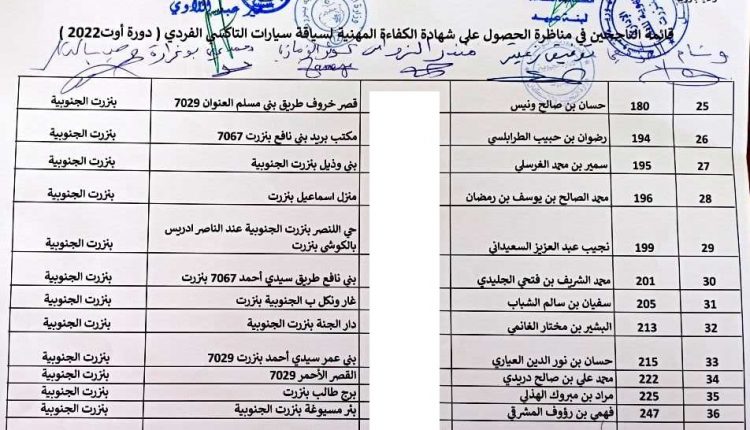 قائمة الناجحين في مناظرة الحصول على شهادة الكفاءة المهنية لسياقة سيارات التاكسي الفردي ( دورة أوت2022 )
25 180 حسان بن صالح ونيس قصر خروف طريق بني مسلم العنوان 7029 بنزرت الجنوبية
26 194 رضوان بن حبيب الطرابلسي مكتب بريد بني نافع بنزرت 7067 بنزرت الجنوبية
27 195 سمير بن محمد الغرسلي بني وذيل بنزرت الجنوبية بنزرت الجنوبية
28 196 محمد الصالح بن يوسف بن رمضان منزل اسماعيل بنزرت بنزرت الجنوبية
29 199 نجيب عبد العزيز السعيداني حي اللنصر بنزرت الجنوبية عند الناصر ادريس بنزرت الجنوبية
بالكوشي بنزرت
30 201 محمد الشريف بن فتحي الجليدي بني نافع طريق سيدي أحمد 7067 بنزرت بنزرت الجنوبية
31 205 سفيان بن سالم الشباب غار ونكل ب الجنوبية بنزرت بنزرت الجنوبية
32 213 البشير بن مختار الغانمي دار الجنة بنزرت الجنوبية بنزرت الجنوبية
33 215 حسان بن نور الدين العياري بني عمر سيدي أحمد بنزرت 7029 بنزرت الجنوبية
34 222 محمد علي بن صالح دريدي القصر الأحمر 7029 بنزرت الجنوبية
35 225 مراد بن مبروك الهذلي برج طالب بنزرت بنزرت الجنوبية
36 247 فهمي بن رؤوف المشرقي بئر مسيوغة بنزرت الجنوبية بنزرت الجنوبية